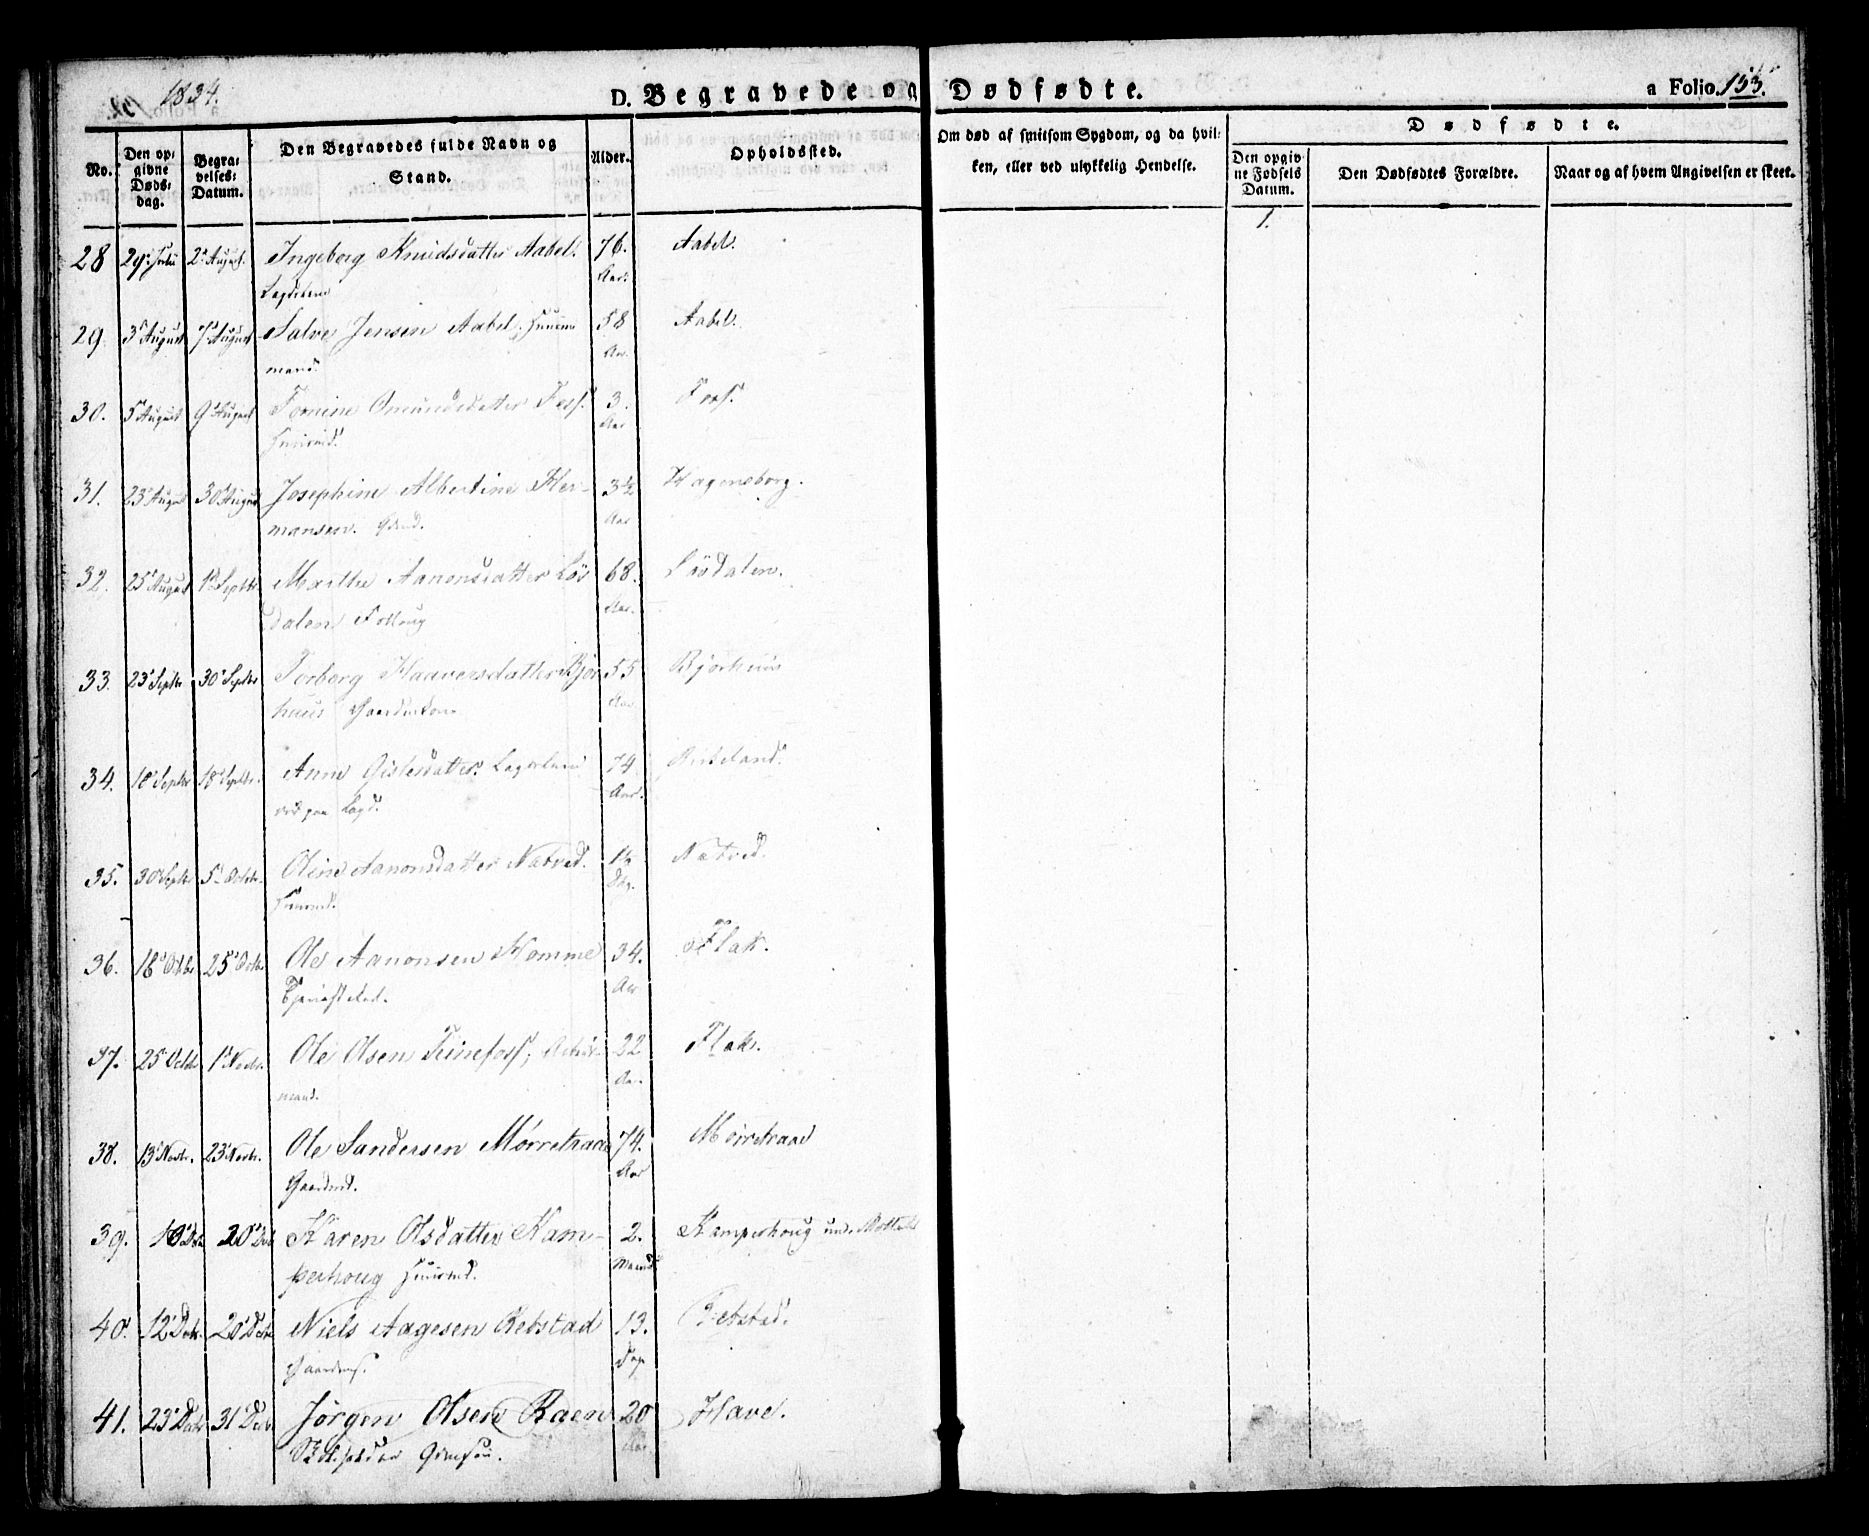 1834.
D. Begravede og Dødfødte.
a Folio. 153.
No.
Den opgivne Døds-dag.
Begravelses-Datum.
Den Begravedes fulde Navn og Stand.
Alder.
Opholdssted.
Om død af smitsom Sygdom, og da hvilken, eller ved ulykkelig Hendelse.
Dødfødte.
Den opgivne Fødsels Datum.
Den Dødfødtes Forældre.
Naar og af hvem Angivelsen er skeet.
1.
28 29 Juli 2 August. Ingeborg Knudsdatter Aabel. 76. Aabel.
Aar.
29. 3 August 7 August Salve Jensen Aabel, Huus 58 Aabel.
mand. Aar.
30. 5 August 9 August Omundsdatter Foss. 3. Foss.
Aar
31. 23 August 30 August Josephine Albertine Her- 3½ Hagensborg.
mansen. Aar
32. 25 August 1 Septbr. Marthe Aanonsdatter Løv 68. Løvdalen.
dalen Aar.
33. 23 Septbr 30 Septbr Torborg Haaversdatter Bjor 55 Bjorhuus
huus Aar
34. 18 Septbr 18 Septbr. Anne Gislesdatter. 74 Birkeland.
Aar.
35. 30 Septbr 5 Octbr. Oline Aanonsdatter Natved. Natved.
36. 18 Octbr 25 Octbr Ole Aanonsen Homme 34. Flak.
Aar
37. 25 Octbr 1 Novbr. Ole Olsen Teinefoss, 22 Flak.
mand. Aar
38. 13 Novbr. 23 Novbr. Ole Sandersen Mørretraae 74. Mørretraae
Gaardmd. Aar
39. 10 Decbr 20 Decbr Karen Olsdatter Kam- 2. Kamperhoug
perhoug Maaned
40. 12 Decbr. 20 Decbr Niels Aagesen Rebstad 13. Rebstad.
Dage
41. 23 Decbr 31 Decbr Jørgen Olsen Raen 20 Have.
Aar